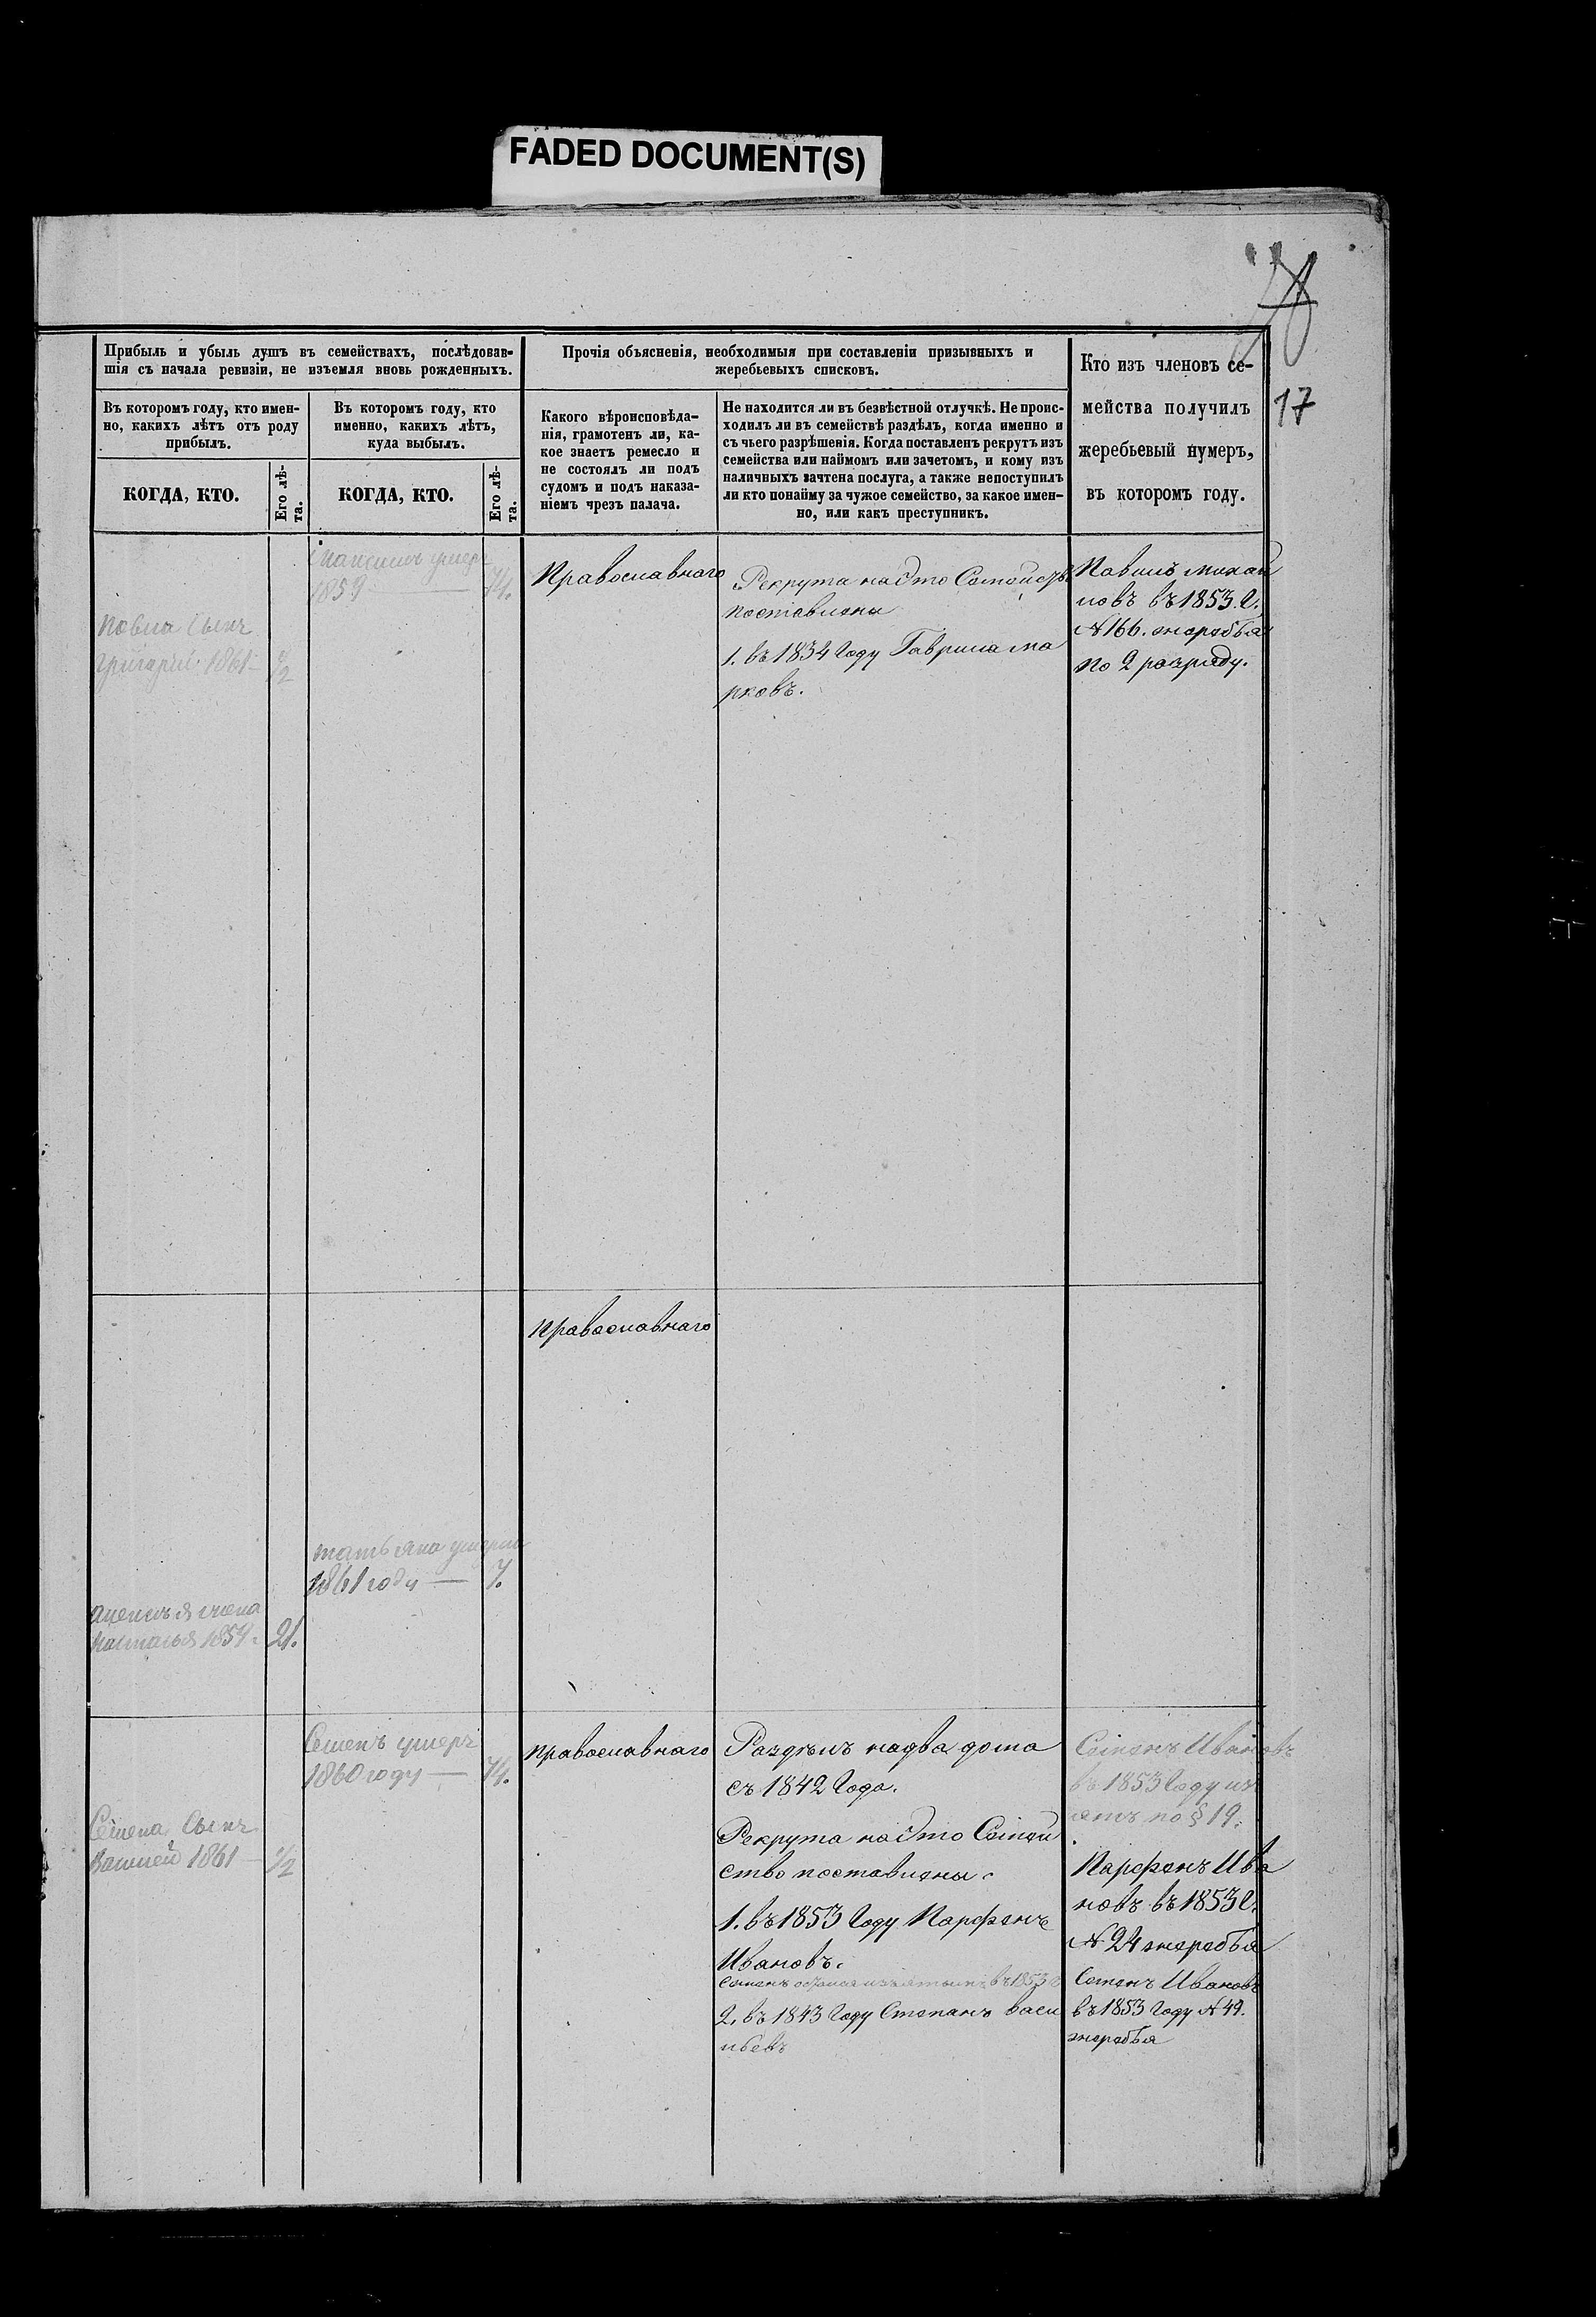 FADED DOCUMENT(S)
17
Прибыль и убыль душъ въ семействахъ, послѣдовав-
шія съ начала ревизіи, не изъемля вновь рожденныхъ.
Прочія объясненія, необходимыя при составленіи призывныхъ и
жеребьевыхъ списковъ.
Кто изъ членовъ се-
мейства получилъ
жеребьевый нумеръ,
въ которомъ году.
Въ которомъ году, кто имен-
но, какихъ лѣтъ отъ роду
прибылъ.
Въ которомъ году, кто
именно, какихъ лѣтъ,
куда выбылъ.
Какого вѣроисповѣда-
нія, грамотенъ ли, ка-
кое знаетъ ремесло и
не состоялъ ли подъ
судомъ и подъ наказа-
ніемъ чрезъ палача.
Не находится ли въ безвѣстной отлучкѣ. Не проис-
ходилъ ли въ семействѣ раздѣлъ, когда именно и
съ чьего разрѣшенія. Когда поставленъ рекрутъ изъ
семейства или наймомъ или зачетомъ, и кому изъ
наличныхъ зачтена послуга, а также непоступилъ
ли кто понайму за чужое семейство, за какое имен-
но, или какъ преступникъ.
КОГДА, КТО.
Его лѣ-
та.
КОГДА, КТО.
Его лѣ-
та.
Павла сынъ
Григорій 1861 – 1/2
Максимъ умеръ
1859 — 74.
Православнаго
Рекрута на это Семейство
поставлены
1. въ 1834 Году Гаврила Ма
рковъ.
Павилъ Михай
ловъ въ 1853. г.
№ 166. жеребья
по 2 разряду.
Православнаго
Татьяна умерла
1861 году — 7.
жена
Наталья 1859. 21.
Семенъ умеръ
1860 году — 74.
Семена сынъ
1861 – 1/2
Православнаго
Раздѣлъ на два дома
съ 1842 Года.
Рекрута на это Семей
ство поставлены.
1. въ 1853 Году Парфенъ
Ивановъ.
въ 1853 г
2. въ 1843 Году Степанъ Васи
льевъ
Семенъ Ивановъ
въ 1853 Году из
ятъ по § 19.
Парфенъ Ива
новъ въ 1853 г.
№ 24 жеребья
Семенъ Ивановъ
въ 1853 Году № 49.
жеребья